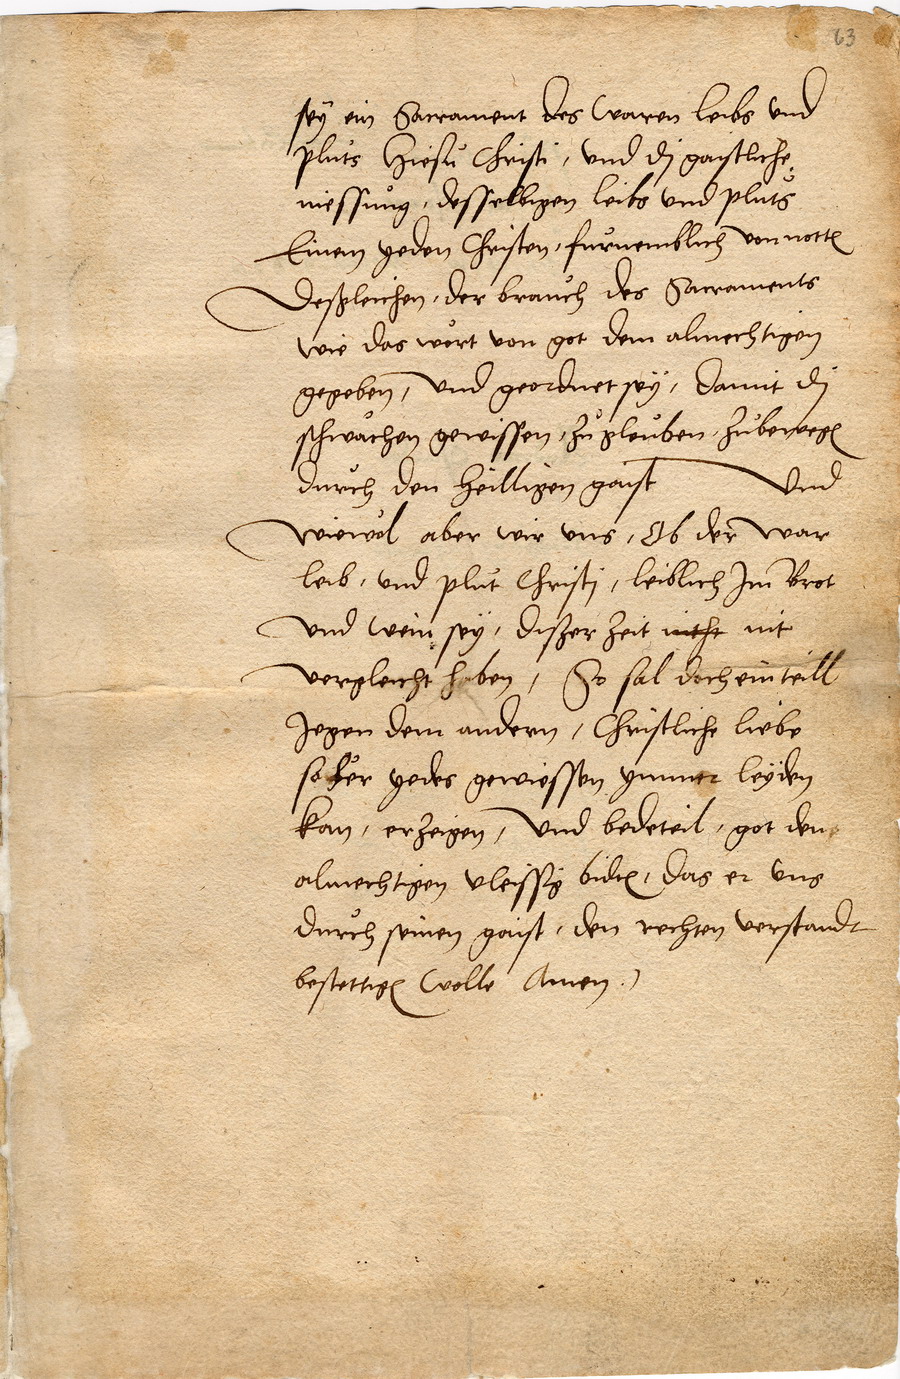 63
sey ein Sacrament des waren leibs und
pluts Hiesu Christi, und dj gaistliche
niessung, desselbigen leibs und pluts
Einem yeden Christen, furnemblich von nott
Deßgleichen, der brauch des Sacraments
wie das wort von got dem almechtigen
gegeben, und geordnet sey, damit dj
schwachen gewissen, zu glauben, zubeweg
durch den heilligen gaist Und
wiewol aber wir uns, Ob der war
leib, und plut Christj, leiblich Jm Brot
und wein sey, dißer zeit nicht nit
vergleicht haben, So sal doch ein teill
Jegen dem andern, Christliche liebe
so fer yedes gewiessen ymmer leyden
kan, erzeigen, Und bedeteil, got den
almechtigen vleissig bidt, das er uns
durch seinen gaist, den rechten verstandt
bestettig wolle Amen.